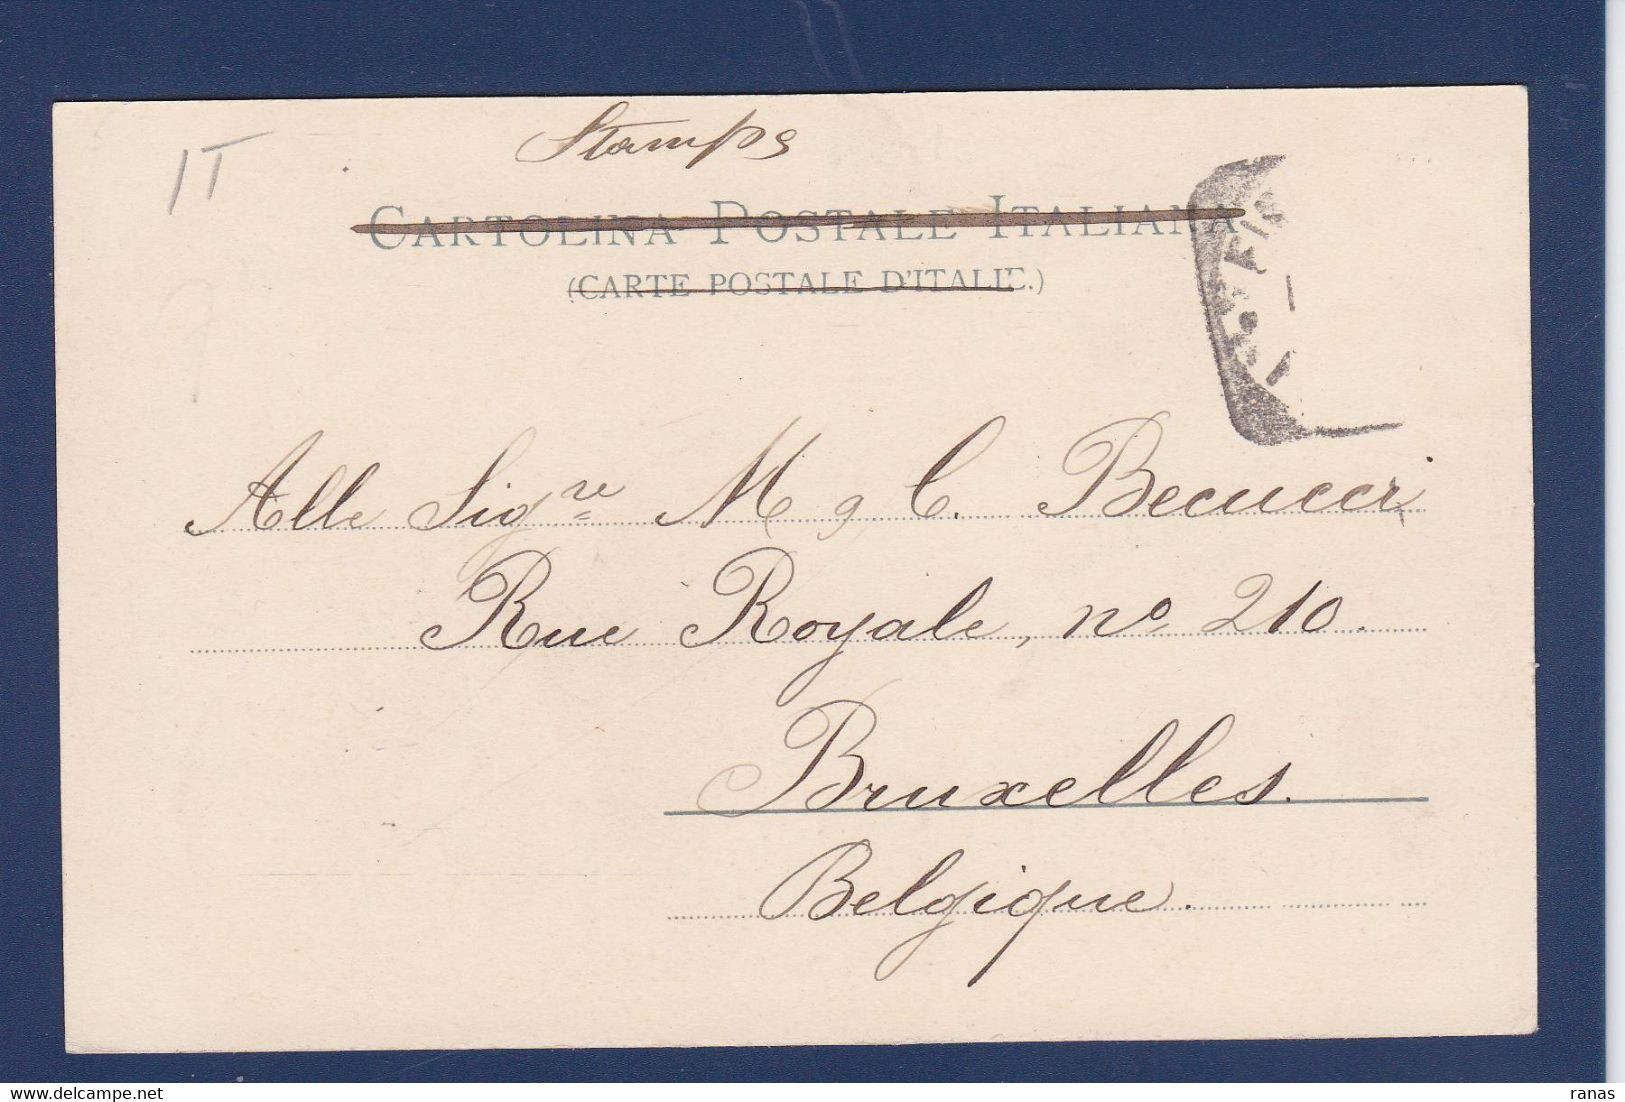 IT
Stamps
CARTOLINA POSTALE ITALIANA
(CARTE POSTALE D'ITALIE.)
Alle Sig.re M. C. Becucci
Rue Royale, nº 210.
Bruxelles.
Belgique.
ranas